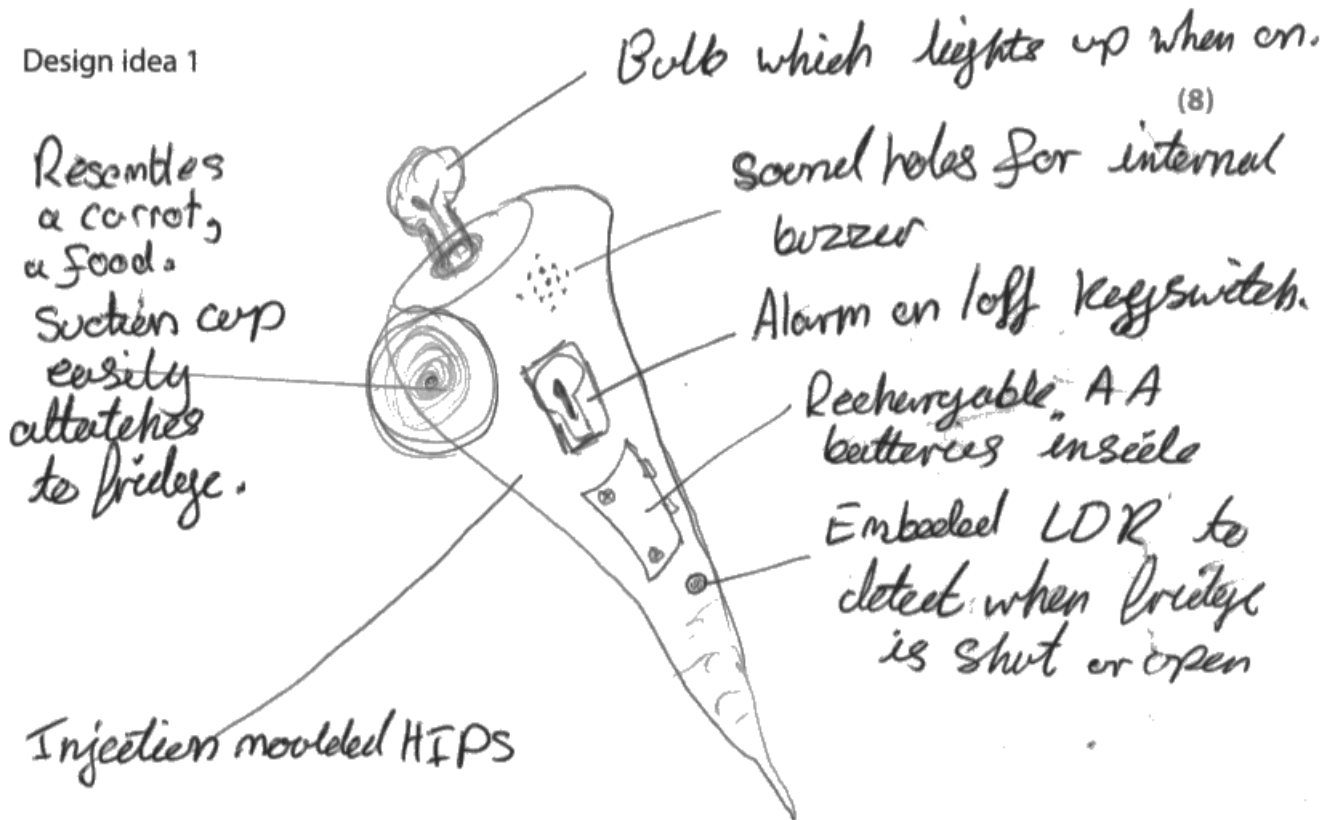 Design idea 1
Bulb which lights up when on.
(8)
Resembles
a carrot,
a food.
Suction cup
easily
attatches
to fridge.
Sound holes for internal
buzzer
Alarm on/off Keyswitch.
Rechargable AA
batteries inside
Embeded LDR to
detect when fridge
is shut or open
Injection moulded HIPS